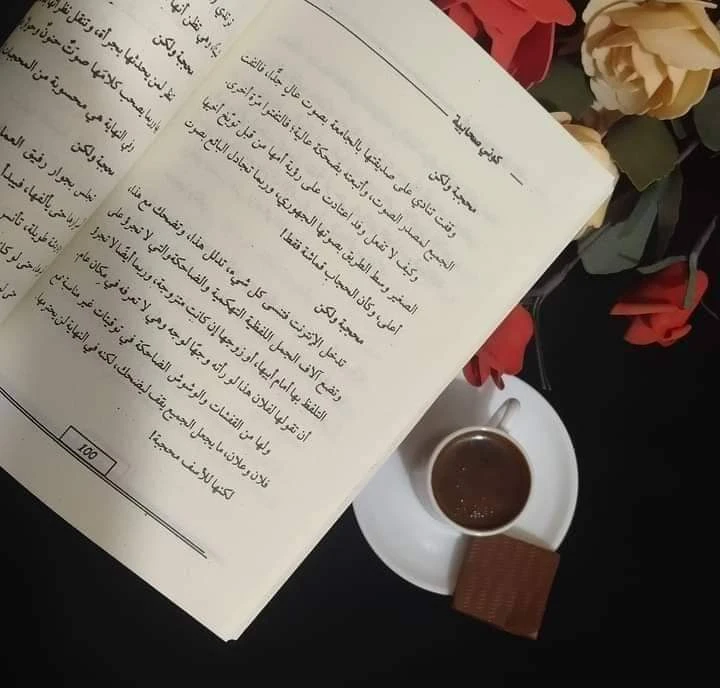 كوني صحابية
محجبة ولكن
وقفت تنادي على صديقتها بالجامعة بصوت عالٍ جدًّا، فالتفت
الجميع لمصدر الصوت، وأتبعته ضحكة عالية؛ فالتفتوا مرة أخرى.
وكيف لا تفعل وقد اعتادت على رؤية أمها من قبل توبّخ أخيها
الصغير وسط الطريق بصوتها الجهوري، وربما تجادل البائع بصوت
أعلى، وكأن الحجاب قماشة فقط!
محجبة ولكن
تدخل الإنترنت فتنسى كل شيء، تدلل هذا، وتضحك مع هذا،
وتضع آلاف الجمل اللفظية التهكمية والضاحكة والتي لا تجرؤ على
التلفظ بها أمام أبيها، أو زوجها إن كانت متزوجة، وربما أيضًا لا تجرؤ
أن تقولها لفلان هذا لو رأته وجهًا لوجه وهي لا تعرفه في مكان عام.
ولها من القفشات والوشوش الضاحكة في توقيتات غير مناسبة مع
فلان وعلان، ما يجعل الجميع يقف ليضحك، لكنه في النهاية لن يحترمها.
لكنها للأسف محجبة!
100
وهي تظن أنها
محجبة ولكن
لمن يحدثها بجرأة، وتنقل نظراتها
يصحب كلامها صوتٌ حنونٌ
في النهاية هي محسوبة من المحجبات
محجبة ولكن
تجلس بجوار رفيق